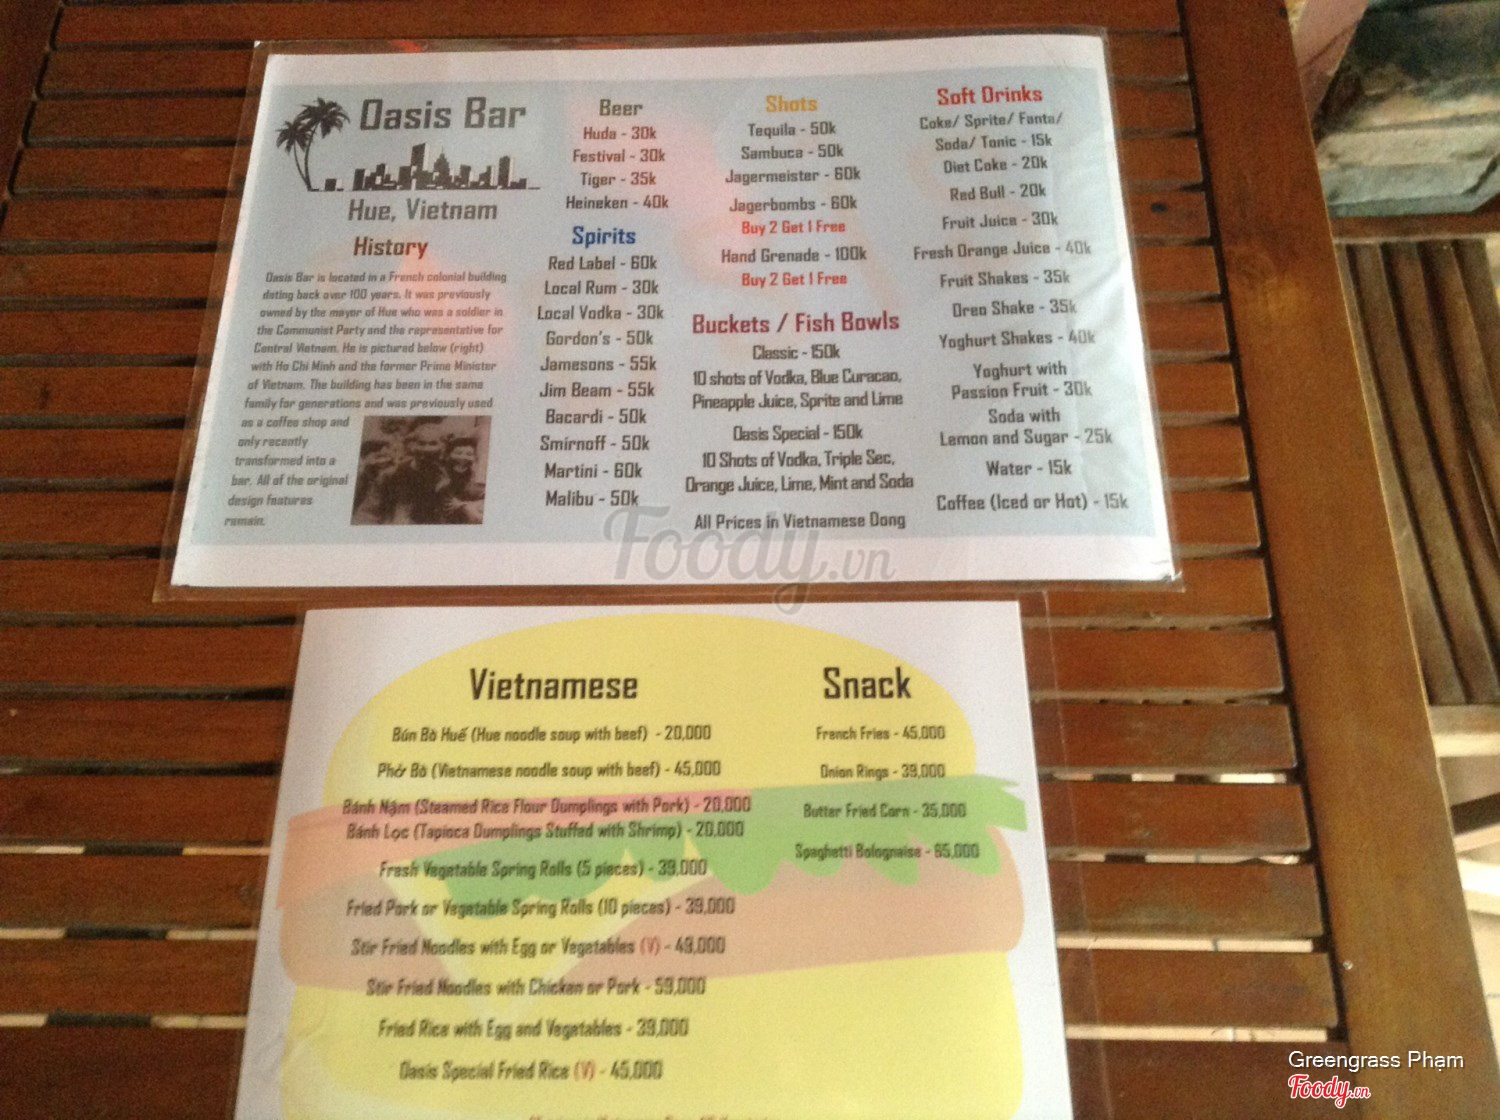 Oasis Bar
Hue, Vietnam
History
Oasis Bar is located in a French colonial building
dating back over 100 years. It was previously
owned by the mayor of Hue who was a soldier in
the Communist Party and the representative for
Central Vietnam. He is pictured below (right)
with Ho Chi Minh and the former Prime Minister
of Vietnam. The building has been in the same
family for generations and was previously used
as a coffee shop and
only recently
transformed into a
bar. All of the original
design features
remain.
Beer
Huda - 30k
Festival - 30k
Tiger - 35k
Heineken - 40k
Spirits
Red Label - 60k
Local Rum - 30k
Local Vodka - 30k
Gordon's - 50k
Jamesons - 55k
Jim Beam - 55k
Bacardi - 50k
Smirnoff - 50k
Martini - 60k
Malibu - 50k
Shots
Tequila - 50k
Sambuca - 50k
Jagermeister - 60k
Jagerbombs - 60k
Buy 2 Get 1 Free
Hand Grenade - 100k
Buy 2 Get 1 Free
Buckets / Fish Bowls
Classic - 150k
10 shots of Vodka, Blue Curacao,
Pineapple Juice, Sprite and Lime
Oasis Special - 150k
10 Shots of Vodka, Triple Sec,
Orange Juice, Lime, Mint and Soda
All Prices in Vietnamese Dong
Soft Drinks
Coke/ Sprite/ Fanta/
Soda/ Tonic - 15k
Diet Coke - 20k
Red Bull - 20k
Fruit Juice - 30k
Fresh Orange Juice - 40k
Fruit Shakes - 35k
Oreo Shake - 35k
Yoghurt Shakes - 40k
Yoghurt with
Passion Fruit - 30k
Soda with
Lemon and Sugar - 25k
Water - 15k
Coffee (Iced or Hot) - 15k
Foody.vn
Vietnamese
Bún Bò Huế (Hue noodle soup with beef) - 20,000
Phở Bò (Vietnamese noodle soup with beef) - 45,000
Bánh Nậm (Steamed Rice Flour Dumplings with Pork) - 20,000
Bánh Lọc (Tapioca Dumplings Stuffed with Shrimp) - 20,000
Fresh Vegetable Spring Rolls (5 pieces) - 39,000
Fried Pork or Vegetable Spring Rolls (10 pieces) - 39,000
Stir Fried Noodles with Egg or Vegetables (V) - 49,000
Stir Fried Noodles with Chicken or Pork - 59,000
Fried Rice with Egg and Vegetables - 39,000
Oasis Special Fried Rice (V) - 45,000
Snack
French Fries - 45,000
Onion Rings - 39,000
Butter Fried Corn - 35,000
Spaghetti Bolognaise - 65,000
Greengrass Phạm
Foody.vn